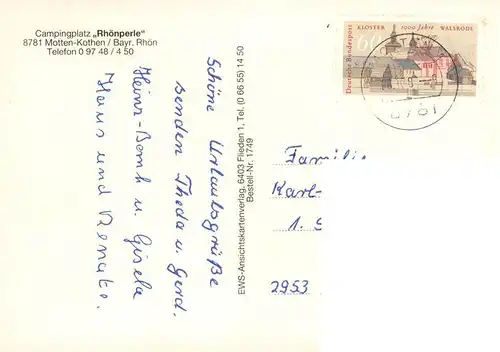 Campingplatz „Rhönperle"
8781 Motten-Kothen / Bayr. Rhön
Telefon 0 97 48 / 4 50
Schöne Urlaubsgrüße
senden Theda u. Gerd.
Heinz-Bernh u. Gisela
Hans und Renate.
EWS-Ansichtskartenverlag, 6403 Flieden 1, Tel. (0 66 55) 14 50
Bestell-Nr. 1749
Deutsche Bundespost
60
KLOSTER 1000 Jahre WALSRODE
8781
Familie
Karl-
1. S
2953